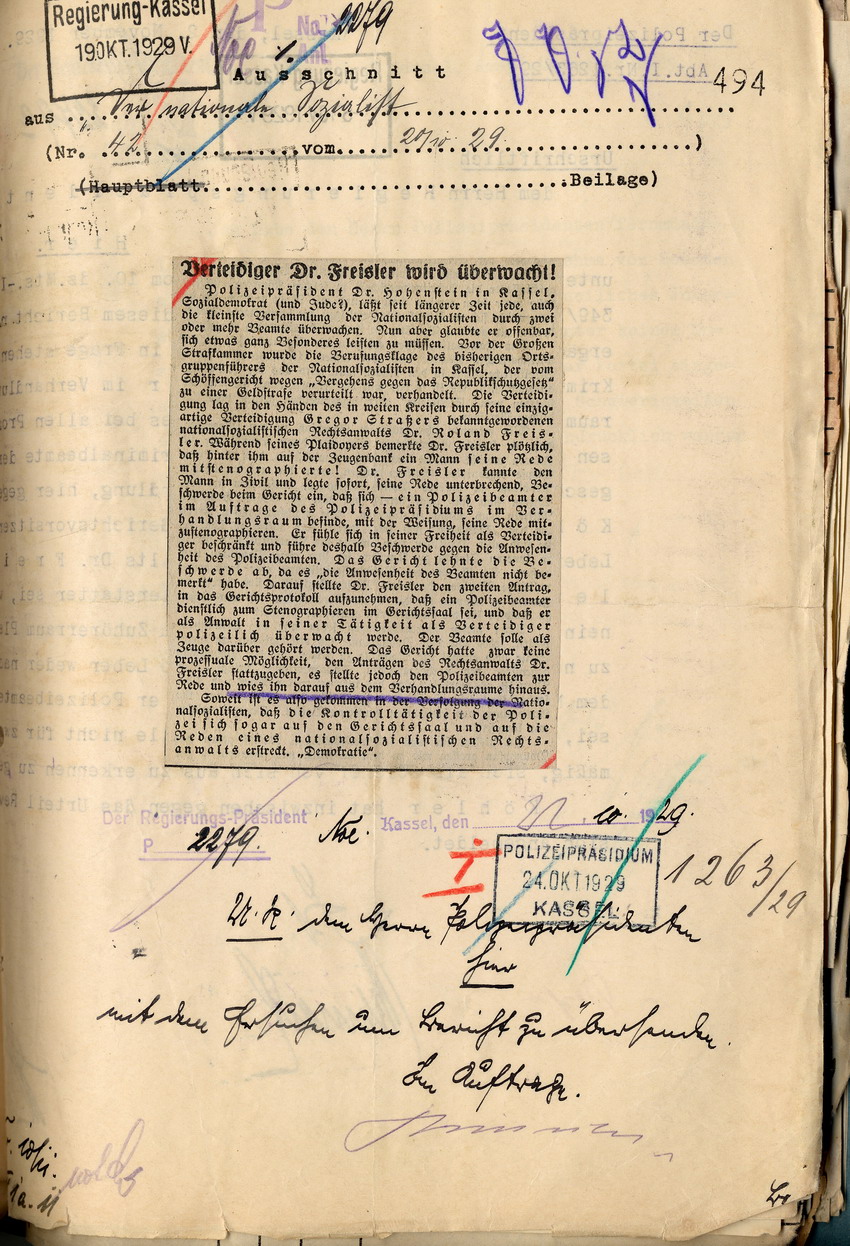 Regierung-Kassel
19.OKT.1929 V.
2279
No.
Anl.
Ausschnitt
494
aus Der nationale Sozialist
(Nr. 42 vom 20/10. 29.)
(Hauptblatt Beilage)
Verteidiger Dr. Freisler wird überwacht!
Polizeipräsident Dr. Hohenstein in Kassel,
Sozialdemokrat (und Jude?), läßt seit längerer Zeit jede, auch
die kleinste Versammlung der Nationalsozialisten durch zwei
oder mehr Beamte überwachen. Nun aber glaubte er offenbar,
sich etwas ganz Besonderes leisten zu müssen. Vor der Großen
Strafkammer wurde die Berufungsklage des bisherigen Orts-
gruppenführers der Nationalsozialisten in Kassel, der vom
Schöffengericht wegen „Vergehens gegen das Republikschutzgesetz“
zu einer Geldstrafe verurteilt war, verhandelt. Die Verteidi-
gung lag in den Händen des in weiten Kreisen durch seine einzig-
artige Verteidigung Gregor Straßers bekanntgewordenen
nationalsozialistischen Rechtsanwalts Dr. Roland Freis-
ler. Während seines Plaidoyers bemerkte Dr. Freisler plötzlich,
daß hinter ihm auf der Zeugenbank ein Mann seine Rede
mitstenographierte! Dr. Freisler kannte den
Mann in Zivil und legte sofort, seine Rede unterbrechend, Be-
schwerde beim Gericht ein, daß sich — ein Polizeibeamter
im Auftrage des Polizeipräsidiums im Ver-
handlungsraum befinde, mit der Weisung, seine Rede mit-
zustenographieren. Er fühle sich in seiner Freiheit als Verteidi-
ger beschränkt und führe deshalb Beschwerde gegen die Anwesen-
heit des Polizeibeamten. Das Gericht lehnte die Be-
schwerde ab, da es „die Anwesenheit des Beamten nicht be-
merkt“ habe. Darauf stellte Dr. Freisler den zweiten Antrag,
in das Gerichtsprotokoll aufzunehmen, daß ein Polizeibeamter
dienstlich zum Stenographieren im Gerichtssaal sei, und daß er
als Anwalt in seiner Tätigkeit als Verteidiger
polizeilich überwacht werde. Der Beamte solle als
Zeuge darüber gehört werden. Das Gericht hatte zwar keine
prozessuale Möglichkeit, den Anträgen des Rechtsanwalts Dr.
Freisler stattzugeben, es stellte jedoch den Polizeibeamten zur
Rede und wies ihn darauf aus dem Verhandlungsraume hinaus.
Soweit ist es also gekommen in der Verfolgung der Natio-
nalsozialisten, daß die Kontrolltätigkeit der Poli-
zei sich sogar auf den Gerichtssaal und auf die
Reden eines nationalsozialistischen Rechts-
anwalts erstreckt. „Demokratie“.
Der Regierungs-Präsident Kassel, den 22. 10. 1929.
P 2279.
POLIZEIPRÄSIDIUM
24.OKT 1929
KASSEL
1263/29
U.R. dem Herrn Polizeipräsidenten
hier
mit dem Ersuchen um Bericht zu übersenden.
Im Auftrage.